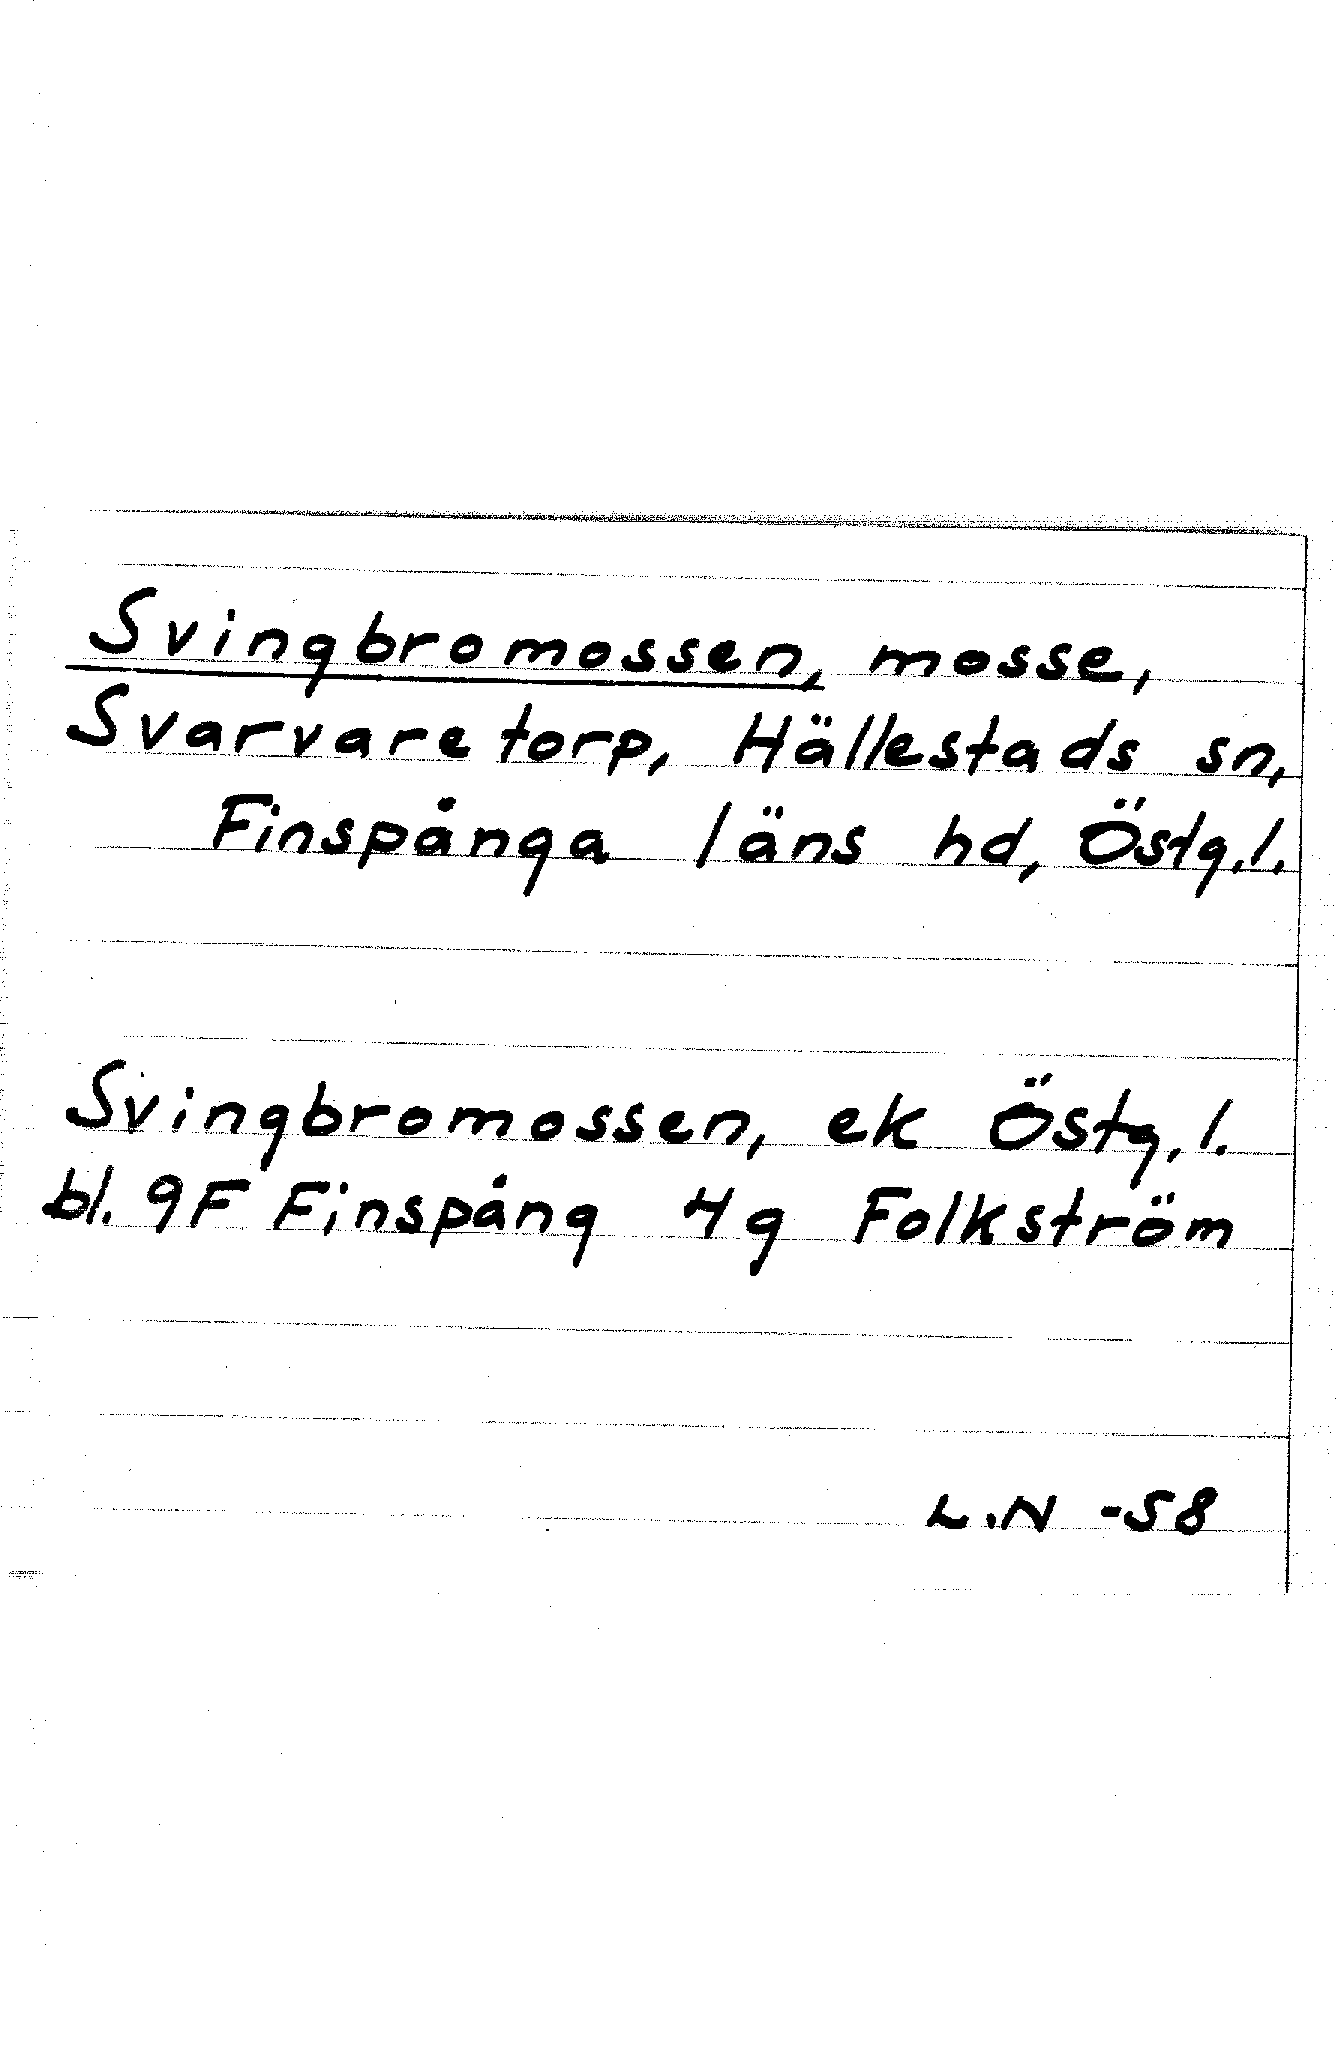 Svingbromossen, mosse,
Svarvaretorp, Hällestads sn,
Finspånga läns hd, Östg.l.
Svingbromossen, ek Östg.l.
bl. 9F Finspång 4g Folkström
L.N -58